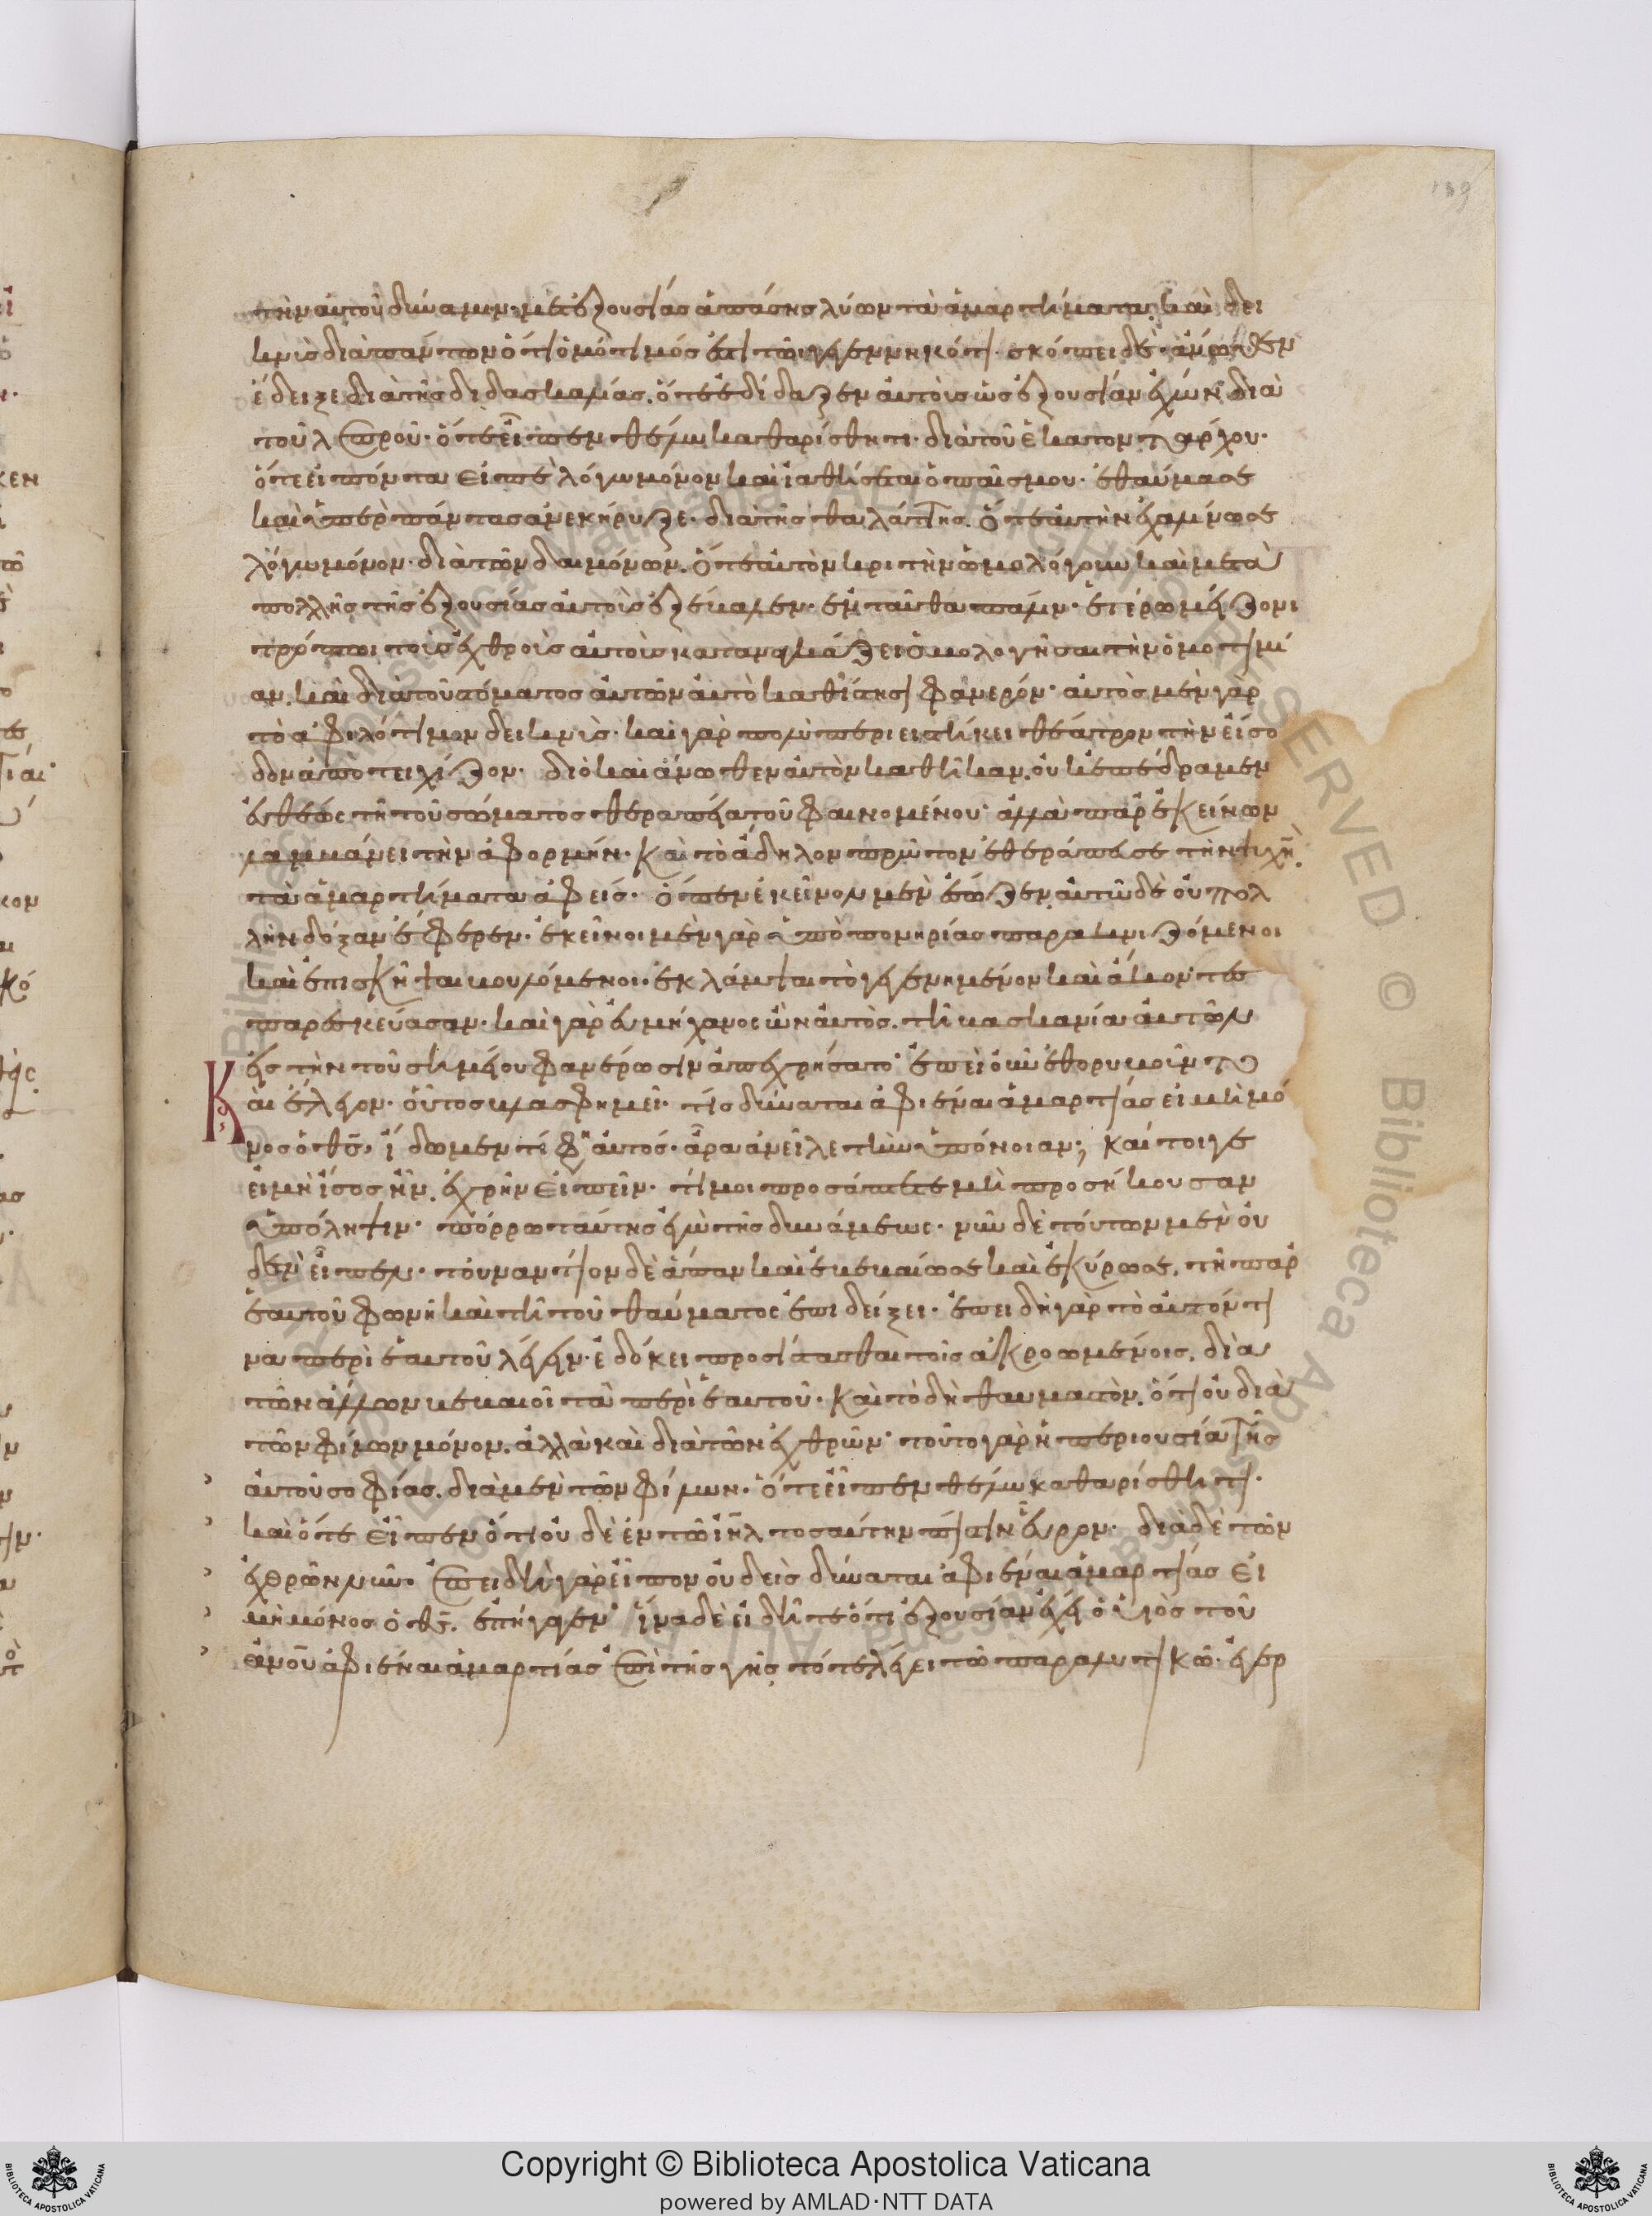 139
τὴν αὐτοῦ δύναμιν· μετ' ἐξουσίας ἁπάσης λύων τὰ ἁμαρτήματα· καὶ δει
κνὺς διὰ πάντων ὅτι ὁμότιμός ἐστι τῶι γεγεννηκότι. σκόπει δέ· ἄνωθεν
ἔδειξε διὰ τῆς διδασκαλίας. ὅτε ἐδίδαξεν αὐτοὺς ὡς ἐξουσίαν ἔχων· διὰ
τοῦ λεπροῦ· ὅτε εἶπεν θέλω καθαρίσθητι· διὰ τοῦ ἑκατοντάρχου·
ὅτε εἰπόντα εἰπὲ λόγω μόνον καὶ ἰαθήσεται ὁ παῖς μου· ἐθαύμασε
καὶ ὑπὲρ πάντας ἀνεκήρυξε· διὰ τῆς θαλάττης. ὅτε αὐτὴν ἐχαλίνωσε
λόγω μόνον· διὰ τῶν δαιμόνων. ὅτε αὐτὸν κριτὴν ὡμολόγουν καὶ μετὰ
πολλῆς τῆς ἐξουσίας αὐτοὺς ἐξέβαλεν· ἐνταῦθα πάλιν· ἑτέρω μείζονι
τρόπωι τοὺς ἐχθροὺς αὐτοὺς καταναγκάζει ὁμολογῆσαι τὴν ὁμοτιμί
αν. καὶ διὰ τοῦ στόματος αὐτῶν αὐτὸ καθίστησι φανερόν· αὐτὸς μὲν γὰρ
τὸ ἀφιλότιμον δεικνύς· καὶ γὰρ πολὺ περιειστήκει θέατρον τὴν εἴσο
δον ἀποτειχίζον· διὸ καὶ ἄνωθεν αὐτὸν καθῆκαν. οὐκ ἐπέδραμεν
εὐθέως τῆ τοῦ σώματος θεραπεία τοῦ φαινομένου· ἀλλὰ παρ' ἐκείνων
λαμβάνει τὴν ἀφορμήν· καὶ τὸ ἄδηλον πρῶτον ἐθεράπευσε τὴν ψυχὴν.
τὰ ἁμαρτήματα ἀφείς· ὅπερ ἐκεῖνον μὲν ἔσωζεν αὐτῶ δὲ οὐ πολ
λὴν δόξαν ἔφερεν· ἐκεῖνοι μὲν γὰρ ὑπὸ πονηρίας παρακνιζόμενοι
καὶ ἐπισκῆψαι βουλόμενοι· ἐκλάμψαι τὸ γεγενημένον καὶ ἄκοντες
παρεσκεύασαν· καὶ γὰρ εὐμήχανος ὢν αὐτὸς. τῆ βασκανία αὐτῶν
εἰς τὴν τοῦ σημείου φανέρωσιν ἀπεχρήσατο· ἐπεὶ οὖν ἐθορυβοῦντο
Καὶ ἔλεγον· οὗτος βλασφημεῖ· τίς δύναται ἀφιέναι ἁμαρτίας εἰ μὴ μό
νος ὁ θς· ἴδωμεν τί φησιν αὐτός· ἆρα ἀνεῖλε τὴν ὑπόνοιαν; καίτοιγε
εἰ μὴ ἴσος ἦν. ἐχρῆν εἰπεῖν· τί μοι προσάπτετε μὴ προσήκουσαν
ὑπόληψιν· πόρρω ταύτης ἐγὼ τῆς δυνάμεως· νῦν δὲ τούτων μὲν οὐ
δὲν εἶπεν· τοὐναντίον δὲ ἅπαν καὶ ἐβεβαίωσε καὶ ἐκύρωσε. τῆ παρ'
ἑαυτοῦ φωνῆ καὶ τῆ τοῦ θαύματος ἐπιδείξει· ἐπειδὴ γὰρ τὸ αὐτόν τι
να περὶ ἑαυτοῦ λέγειν· ἐδόκει προσίστασθαι τοῖς ἀκροωμένοις. διὰ
τῶν ἄλλων βεβαιοῖ τὰ περὶ ἑαυτοῦ· καὶ τὸ δὴ θαυμαστὸν. ὅτι οὐ διὰ
τῶν φίλων μόνον. ἀλλὰ καὶ διὰ τῶν ἐχθρῶν· τοῦτο γὰρ ἡ περιουσία τῆς
αὐτοῦ σοφίας. διὰ μὲν τῶν φίλων· ὅτε εἶπεν θέλω καθαρίσθητι·
καὶ ὅτε εἶπεν ὅτι οὐδὲ ἐν τῶ ἰηλ τοσαύτην πίστιν εὗρον· διὰ δὲ τῶν
ἐχθρῶν νῦν· ἐπειδὴ γὰρ εἶπον οὐδεὶς δύναται ἀφιέναι ἁμαρτίας εἰ
μὴ μόνος ὁ θς. ἐπήγαγεν· ἵνα δὲ εἰδῆτε ὅτι ἐξουσίαν ἔχει ὁ υἱὸς τοῦ
ανου ἀφιέναι ἁμαρτίας ἐπὶ τῆς γῆς τότε λέγει τῶ παραλυτικῶ· ἔγερ
Copyright © Biblioteca Apostolica Vaticana
powered by AMLAD·NTT DATA